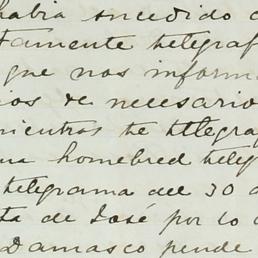 habia sucedido
tamente telegraf
que nos inform
ios de necesario
mientras te telegra
una homebred teleg
telegrama del 30 d
ta de José por lo
Damasco pende